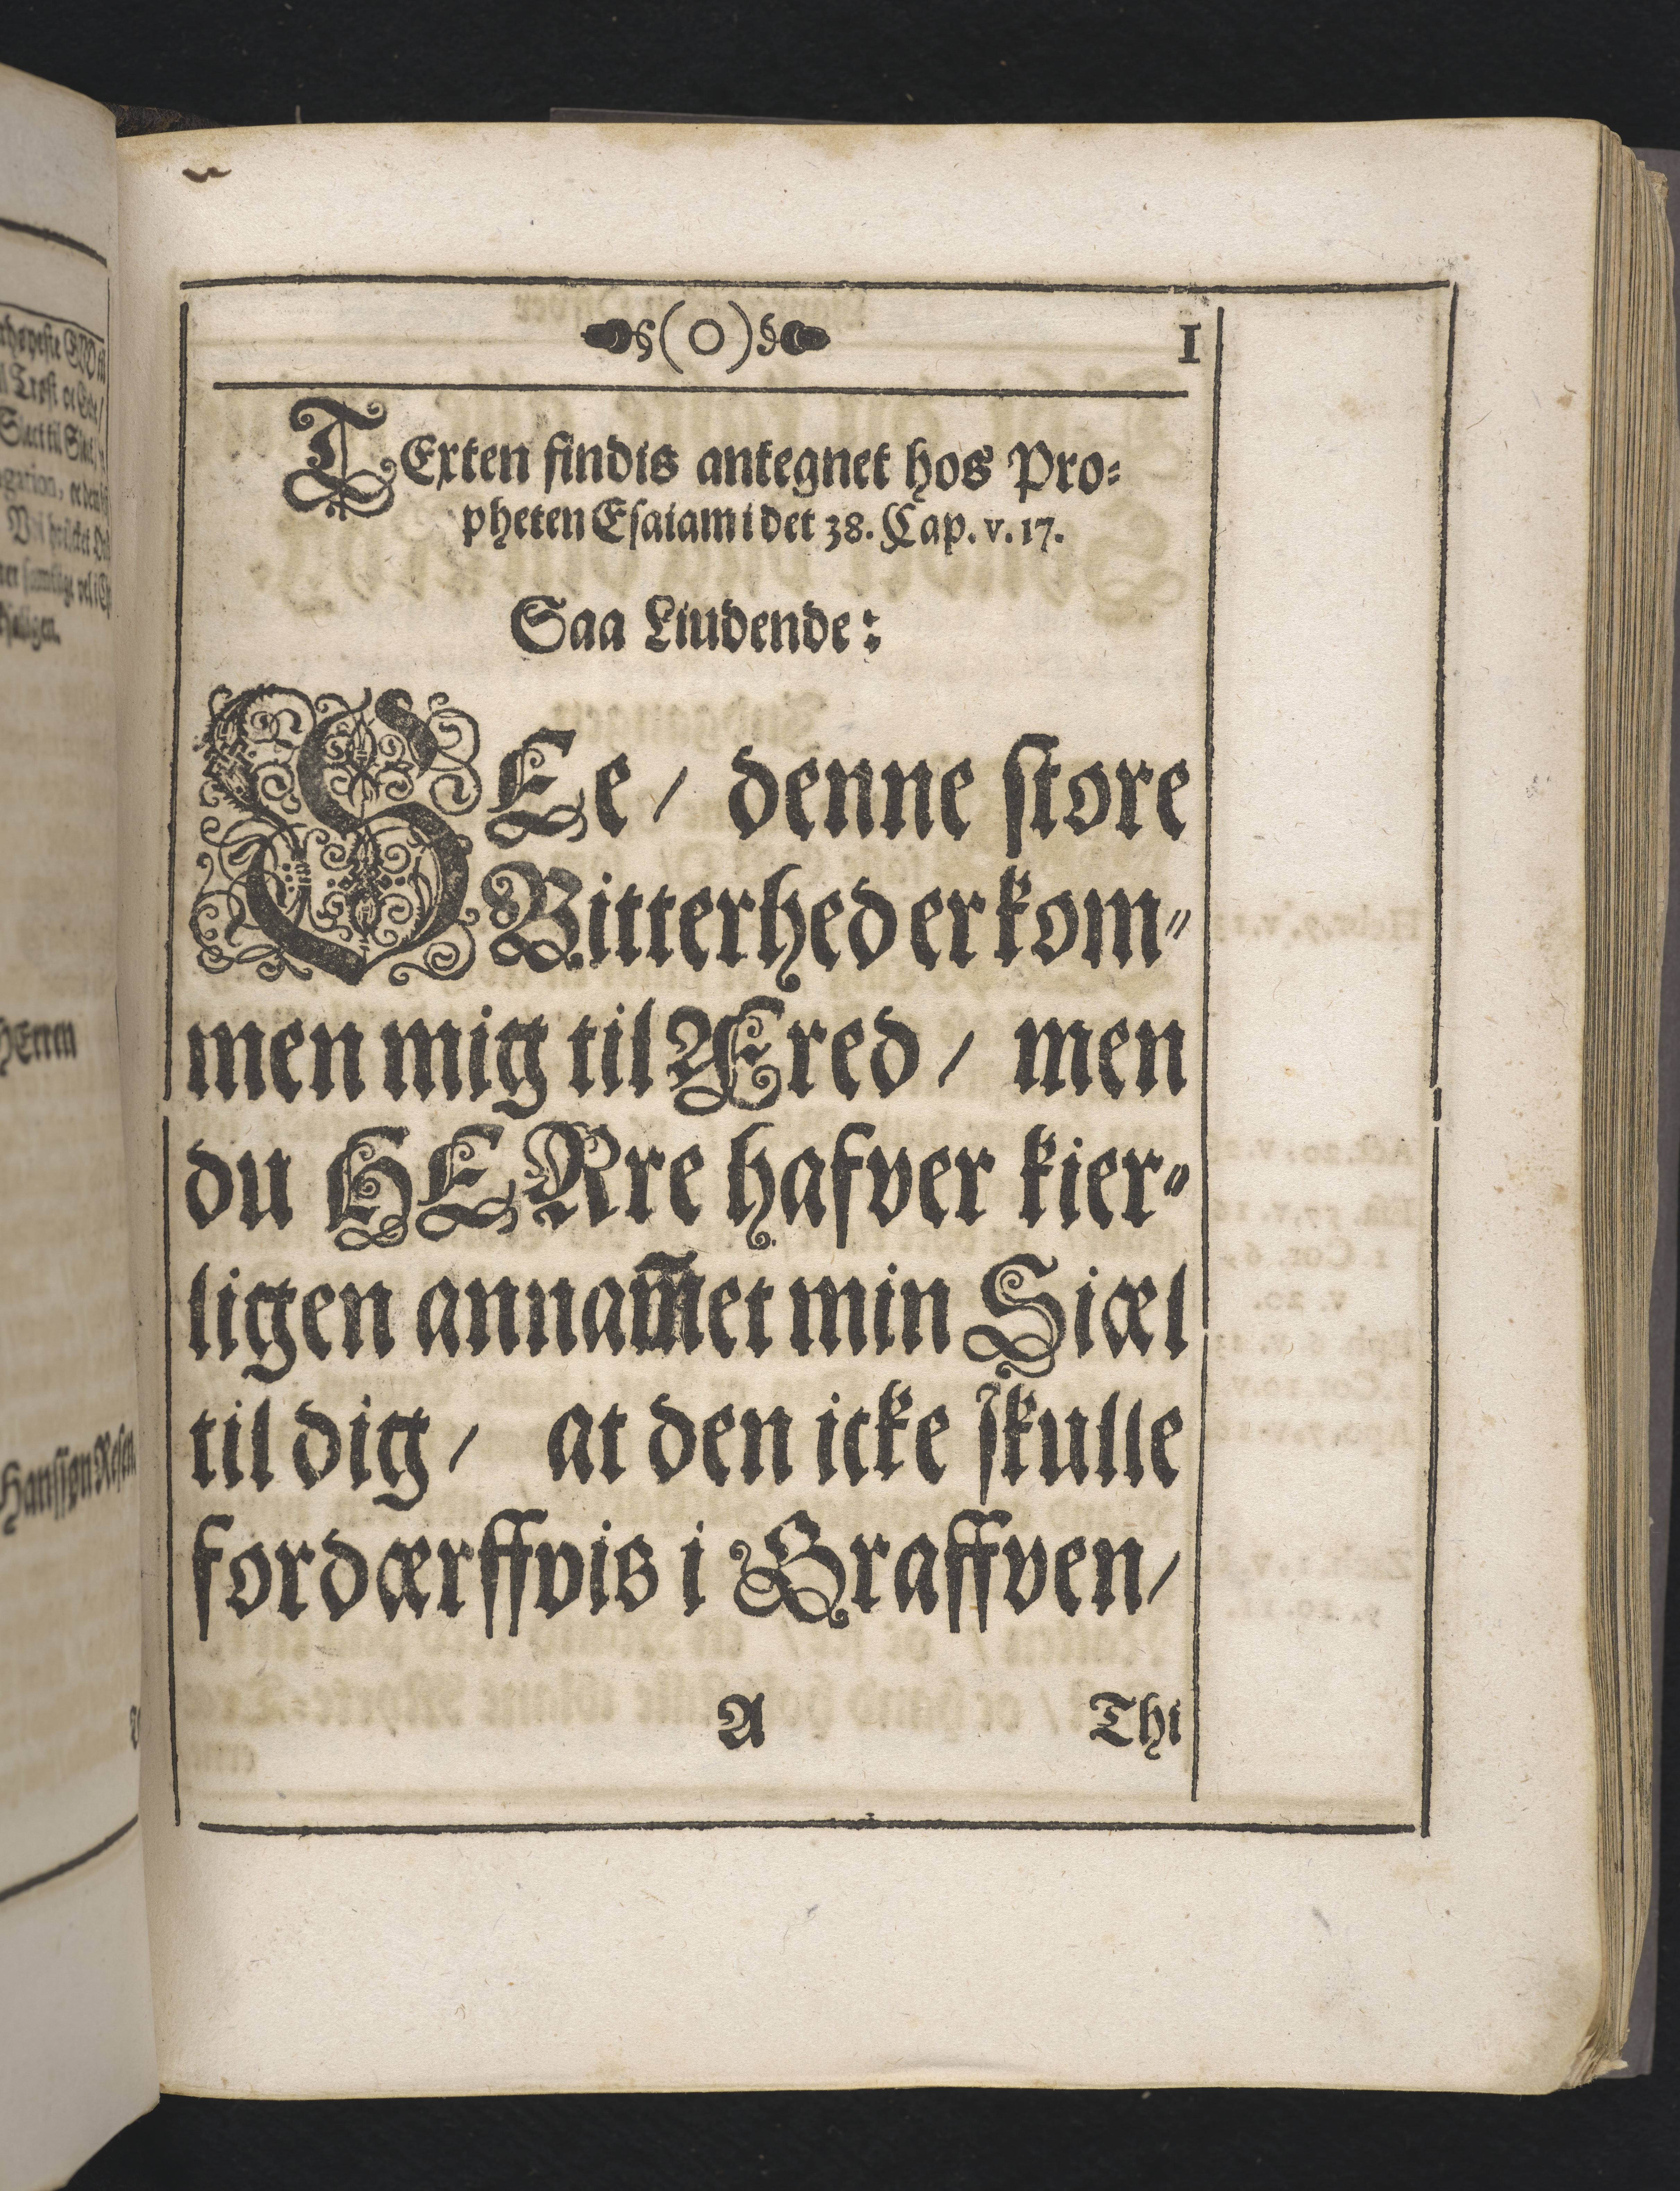 §(O)§ 1
TExten findis antegnet hos Pro-
pheten Esaiam i det 38. Cap. v. 17.
Saa Liudende:
SEe/ denne store
Bitterhed er kom-
men mig til Æred/ men
du HERre hafver kier-
ligen annam̅et min Siæl
til dig/ at den icke skulle
fordærffvis i Graffven/
A Thi
HErren